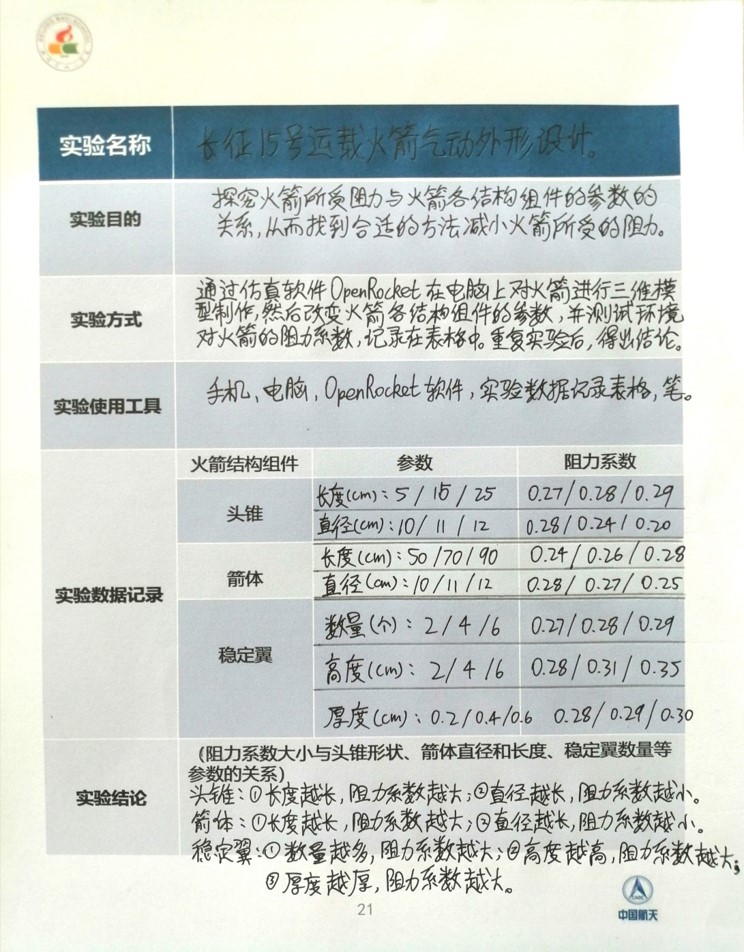 实验名称 长征15号运载火箭气动外形设计。
实验目的 探究火箭所受阻力与火箭各结构组件的参数的
关系,从而找到合适的方法减小火箭所受的阻力。
实验方式 通过仿真软件OpenRocket在电脑上对火箭进行三维模
型制作,然后改变火箭各结构组件的参数,并测试环境
对火箭的阻力系数,记录在表格中。重复实验后,得出结论。
实验使用工具 手机、电脑,OpenRocket软件,实验数据记录表格,笔。
实验数据记录
火箭结构组件 参数 阻力系数
头锥
长度(cm):5/15/25 0.27/0.28/0.29
直径(cm):10/11/12 0.28/0.24/0.20
箭体
长度(cm):50/70/90 0.24/0.26/0.28
直径(cm):10/11/12 0.28/0.27/0.25
稳定翼
数量(个):2/4/6 0.27/0.28/0.29
高度(cm):2/4/6 0.28/0.31/0.35
厚度(cm):0.2/0.4/0.6 0.28/0.29/0.30
实验结论
(阻力系数大小与头锥形状、箭体直径和长度、稳定翼数量等
参数的关系)
头锥:①长度越长,阻力系数越大;②直径越长,阻力系数越小。
箭体:①长度越长,阻力系数越大;②直径越长,阻力系数越小。
稳定翼:①数量越多,阻力系数越大;②高度越高,阻力系数越大;
③厚度越厚,阻力系数越大。
21
中国航天